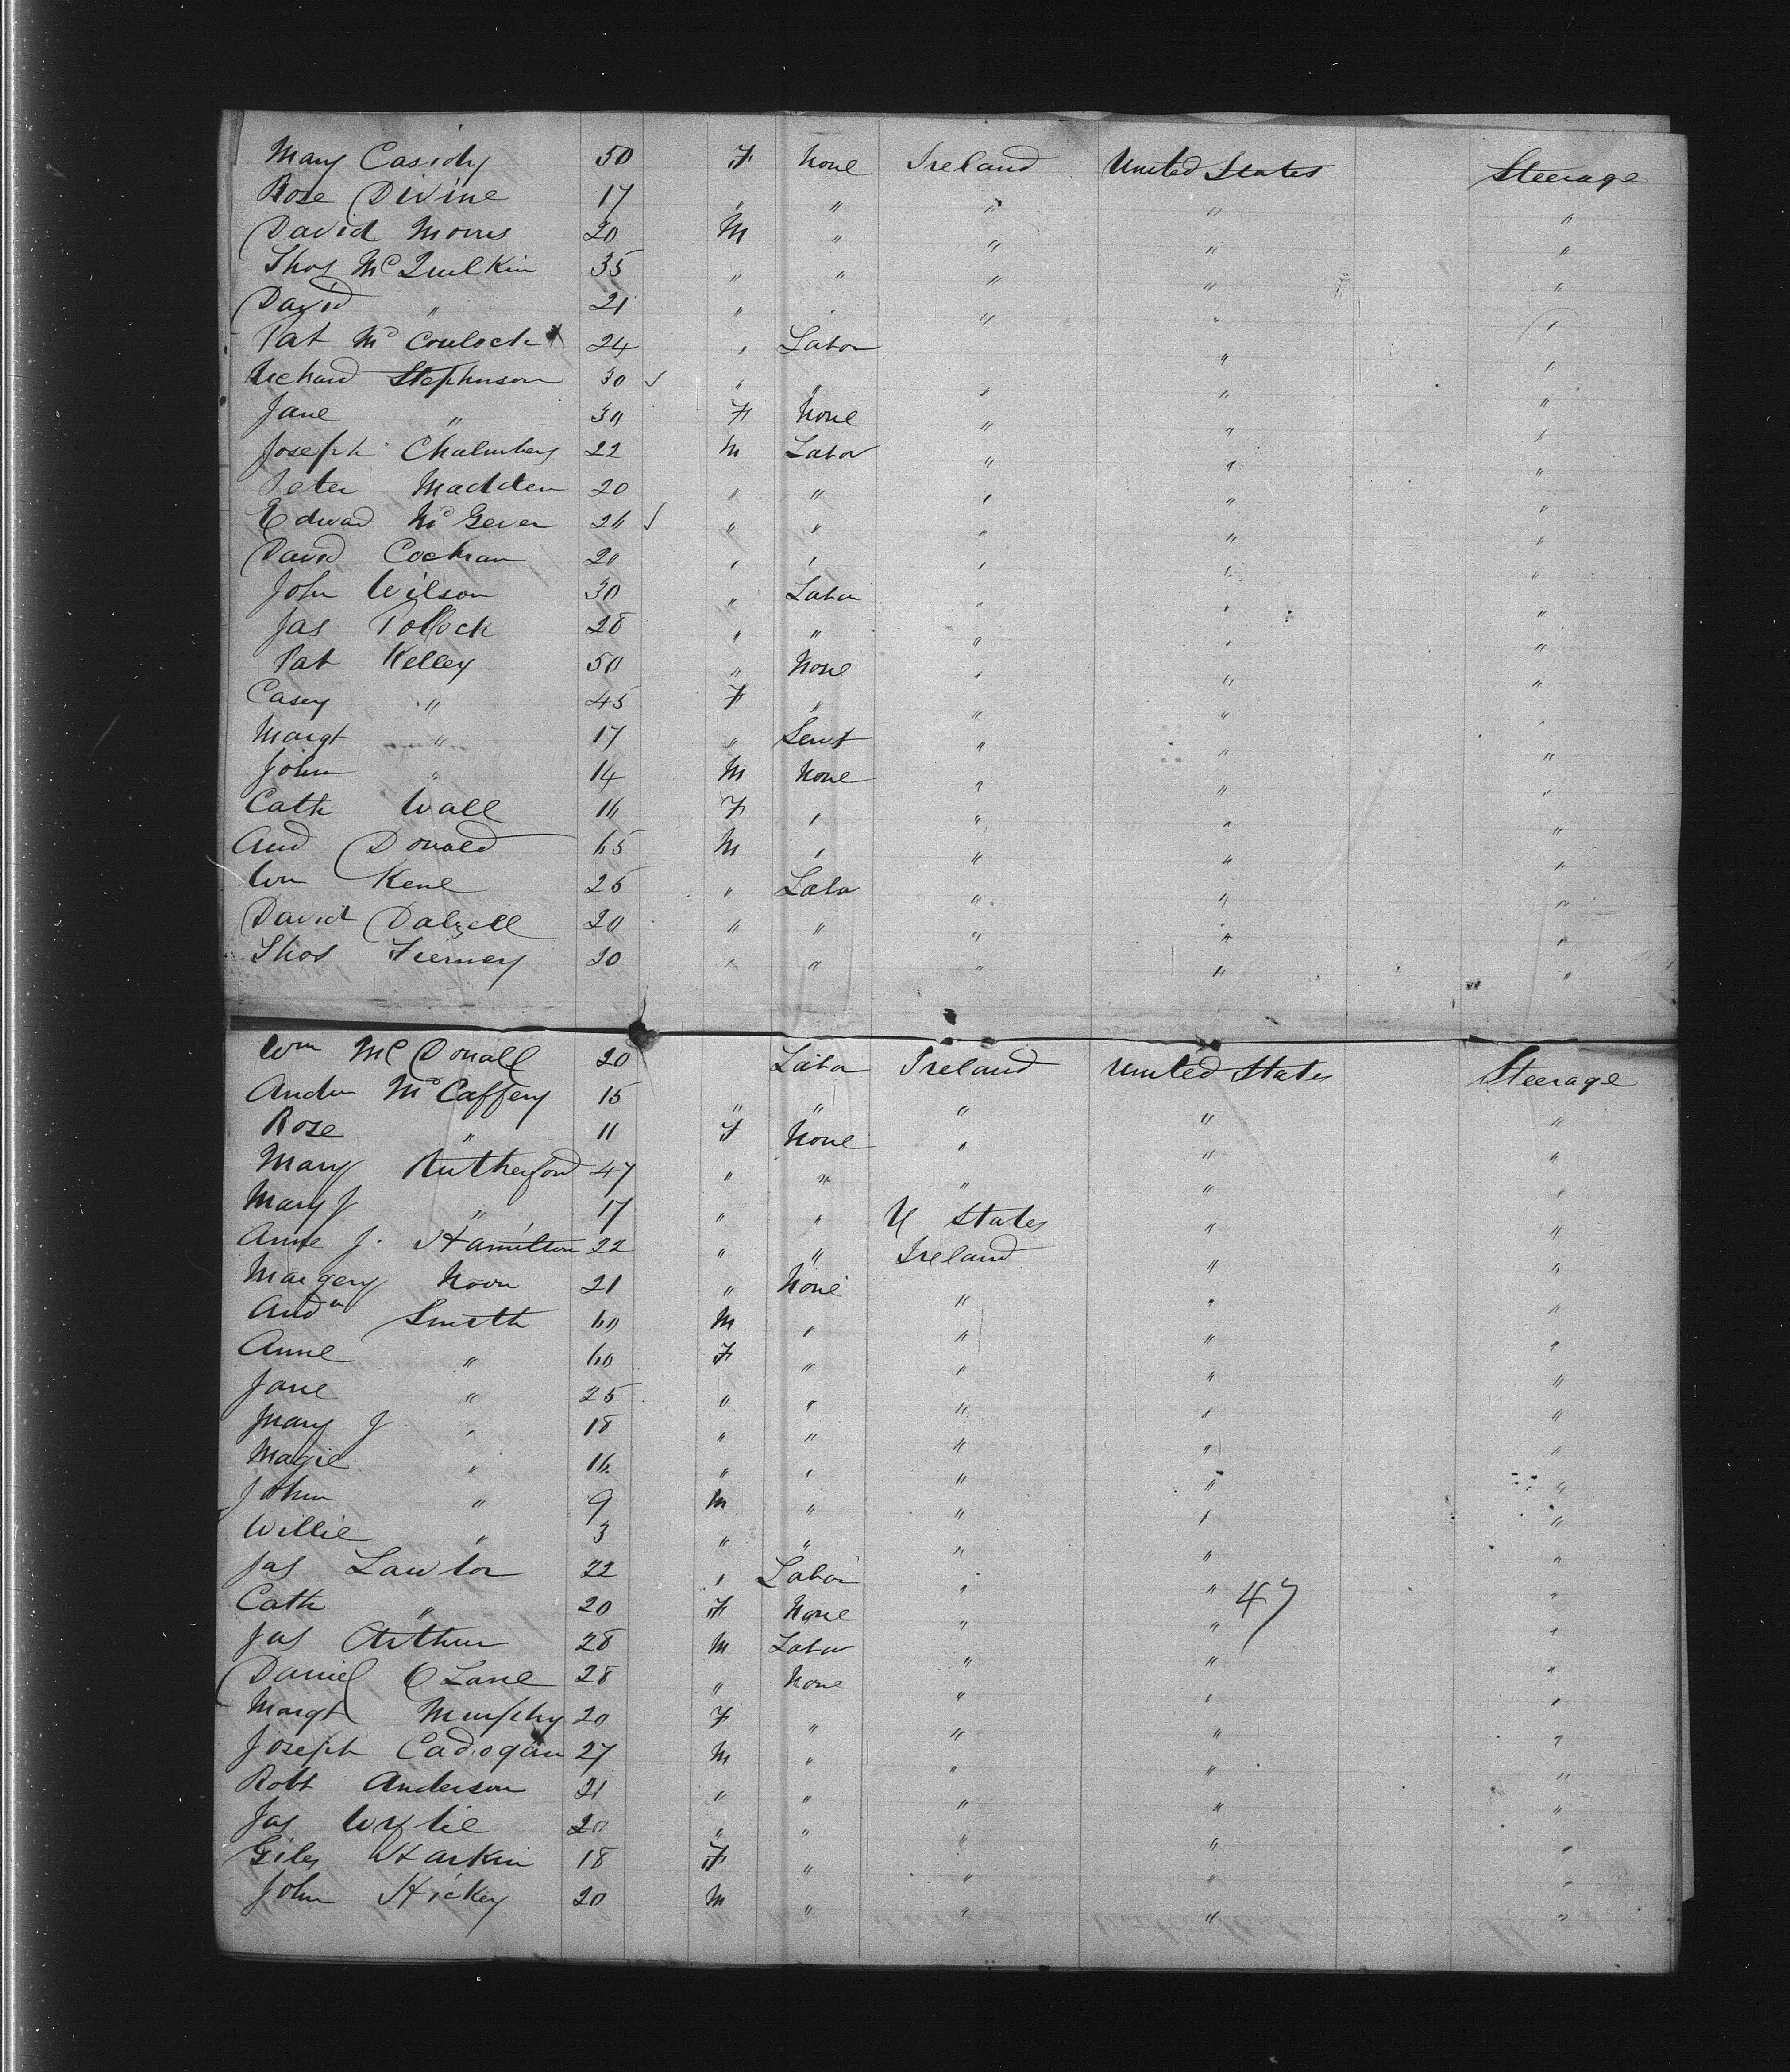 Mary Casidy 50 F None Ireland United States Steerage
Rose Divine 17 " " " " "
David Morris 20 M " " " "
Thos McQuilkin 35 " " " " "
David " 21 " " " " "
Pat McCouloch 24 " Labor " "
Richard Stephenson 30 ✓ " " " " "
Jane " 30 F None " " "
Joseph Chalmbers 22 M Labor " " "
Peter Madden 20 " " " " "
Edward McGever 26 ✓ " " " " "
David Cochran 20 " " " " "
John Wilson 30 " Labor " " "
Jas Pollock 28 " " " " "
Pat Kelley 50 " None " " "
Casey " 45 F " " " "
Margt " 17 " Servt " " "
John " 14 M None " " "
Cath Wall 16 F " " " "
And Donald 65 M " " " "
Wm Kene 25 " Labor " " "
David Dalzell 20 " " " " "
Thos Tierney 20 " " " " "
Wm McDonall 20 Labor Ireland United States Steerage
Andw McCaffery 15 " " " " "
Rose " 11 F None " " "
Mary Rutherford 47 " " " " "
Mary J " 17 " " U States " "
Anne J. Hamilton 22 " " Ireland " "
Margery Noon 21 " None " " "
Andw Smith 60 M " " " "
Anne " 60 F " " " "
Jane " 25 " " " " "
Mary J " 18 " " " " "
Magie " 16 " " " " "
John " 9 M " " " "
Willie " 3 " " " " "
Jas Lawlor 22 " Labor " " "
Cath " 20 F None " " 47 "
Jas Arthur 28 M Labor " " "
Daniel O Lane 28 " None " " "
Margt Murphy 20 F " " " "
Joseph Cadogan 27 M " " " "
Robt Anderson 21 " " " " "
Jas Wylie 20 " " " " "
Giles Harkin 18 F " " " "
John Hickey 20 M " " " "